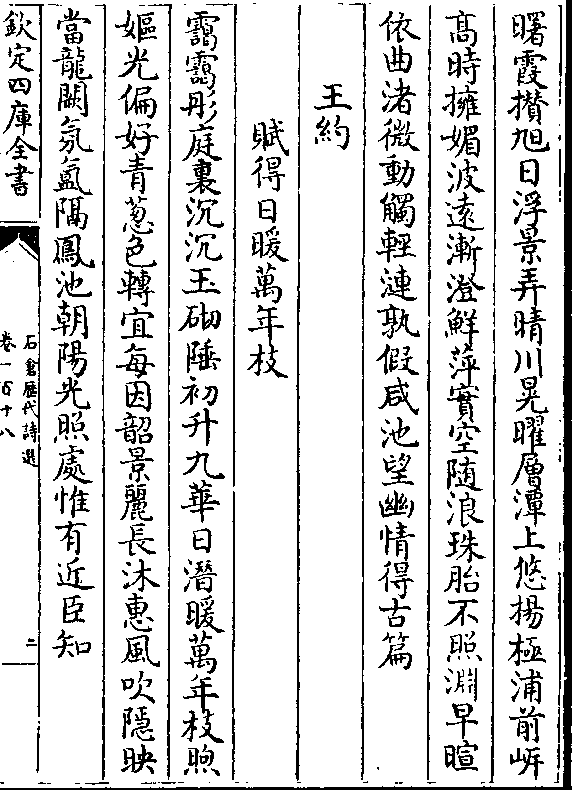 曙霞攢旭日浮景弄晴川晃曜層潭上悠揚極浦前岍
髙時擁媚波遠漸澄鮮萍實空隨浪珠胎不照淵早暄
依曲渚微動觸輕漣孰假咸池望幽情得古篇
王約
賦得日暖萬年枝
靄靄彤庭裏沉沉玉砌陲初升九華日潛暖萬年枝煦
嫗光偏好青葱色轉宜每因韶景麗長沐惠風吹隱映
當龍闕氛氳隔鳳池朝陽光照處惟有近臣知
欽定四庫全書
石倉歷代詩選
卷一百十八
二